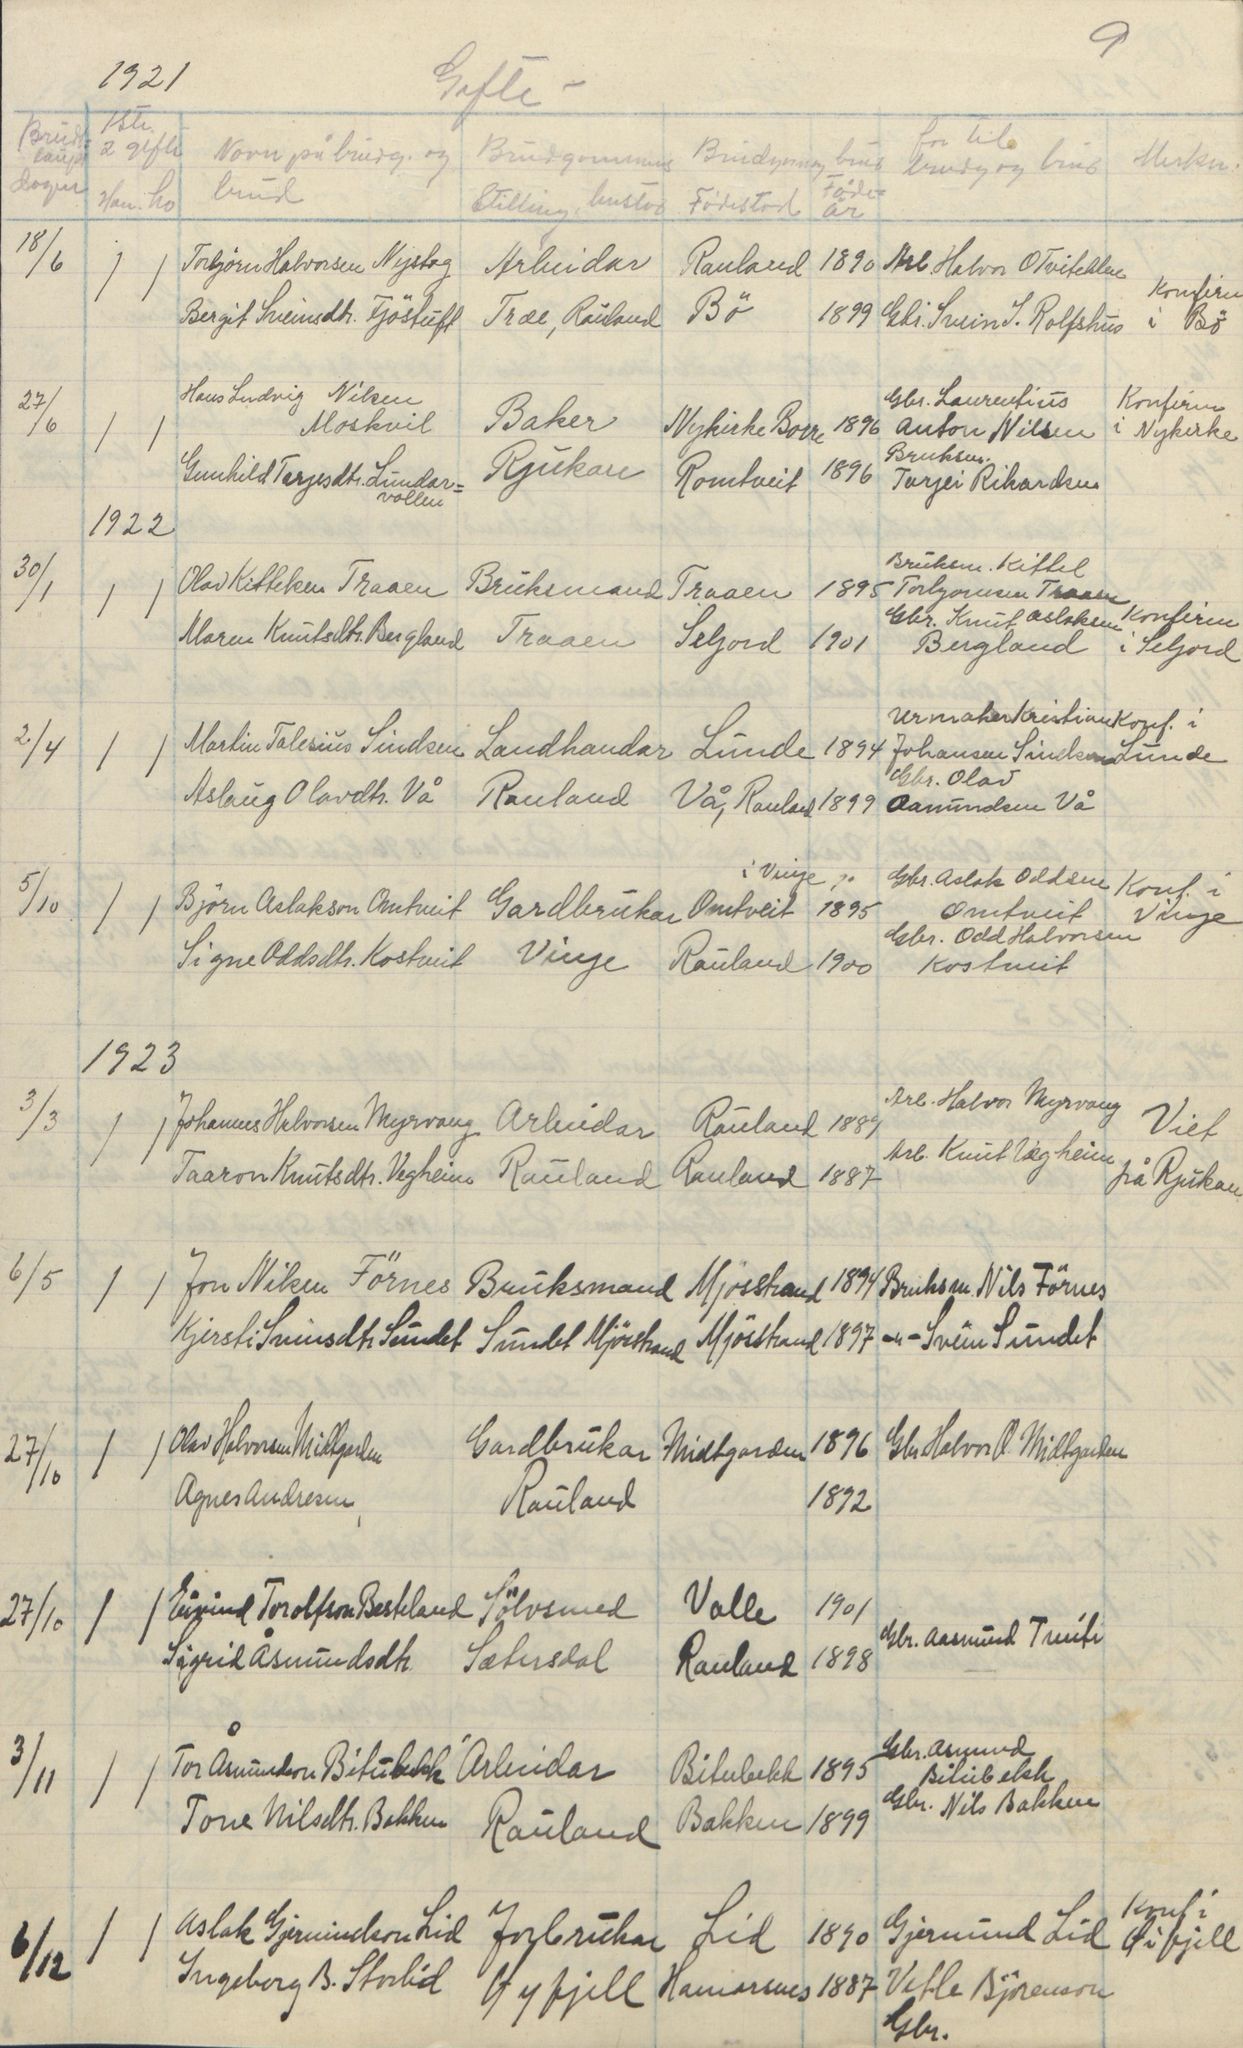 9
1921 Gifte -
Brud- 1ste
laups 2 gifte Navn på brudg. og Brudgommens Brudgom og brur for til Merkn.
dagur Han. ho brud Stilling, bustad Fødestad Føde- brudg og brur
år
18/6 / / Torbjörn Halvorsen Nystog Arbeidar Rauland 1890 Arb. Halvor O Tvitekleu
Bergit Sveinsdtr. Fjöstuft Træe, Rauland Bö 1899 Gbr. Svein S. Rolfshus Konfirm i Bö
27/6 / / Hans Ludvig Nilsen Moskvil Baker Nykirke Borre 1896 Gbr. Laurentius Anton Nilsen Konfirm i Nykirke
Gunhild Terjesdtr. Lundar=vollen Rjukan Romtveit 1896 Bruksm. Tarjei Rikardsen
1922
30/1 / / Olav Kittelsen Traaen Bruksmand Traaen 1895 Bruksm. Kittel Torbjørnsen Traaen
Maren Knutsdtr. Bergland Traaen Seljord 1901 Gbr. Knut Aslaksen Bergland Konfirm i Seljord
2/4 / / Martin Talesius Sindsen Landhandar Lunde 1894 Urmaker Kristian Johansen Sindsen Konf. i Lunde
Aslaug Olavdtr. Vå Rauland Vå, Rauland 1899 Gbr. Olav Aamundsen Vå
5/10 / / Björn Aslakson Omtveit Gardbrukar Omtveit i Vinje p. 1895 Gbr. Aslak Oddsen Omtveit Konf. i Vinje
Signe Oddsdtr. Kostveit Vinje Rauland 1900 Gbr. Odd Halvorsen Kostveit
1923
3/3 / / Johannes Halvorsen Myrvang Arbeidar Rauland 1889 Arb. Halvor Myrvang Viet
Taaron Knutsdtr. Vegheim Rauland Rauland 1887 Arb. Knut Vegheim frå Rjukan
6/5 / / Jon Nilsen Förnes Bruksmand Mjösstrand 1894 Bruksm. Nils Förnes
Kjersti Sveinsdtr. Sundet Sundet Mjösstrand Mjösstrand 1897 -"- Svein Sundet
27/10 / / Olav Halvorsen Midtgarden Gardbrukar Midtgarden 1896 Gbr Halvor O. Midtgarden
Agnes Andresen, Rauland 1892
27/10 / / Eivind Torolfson Besteland Sölvsmed Valle 1901
Sigrid Åsmundsdtr. Sætersdal Rauland 1898 Gbr. Aasmund
3/11 / / Tor Åsmundson Bitubekk Arbeidar Bitubekk 1895 Gbr. Asmund Bitubekk
Tone Nilsdtr. Bakken Rauland Bakken 1899 Gbr. Nils Bakken
6/12 / / Aslak Gjermundson Lid Jorbrukar Lid 1890 Gjermund Lid Konf i Öifjell
Ingeborg B. Storlid Öyfjell Hamarsnes 1887 Vetle Björenson
Gbr.